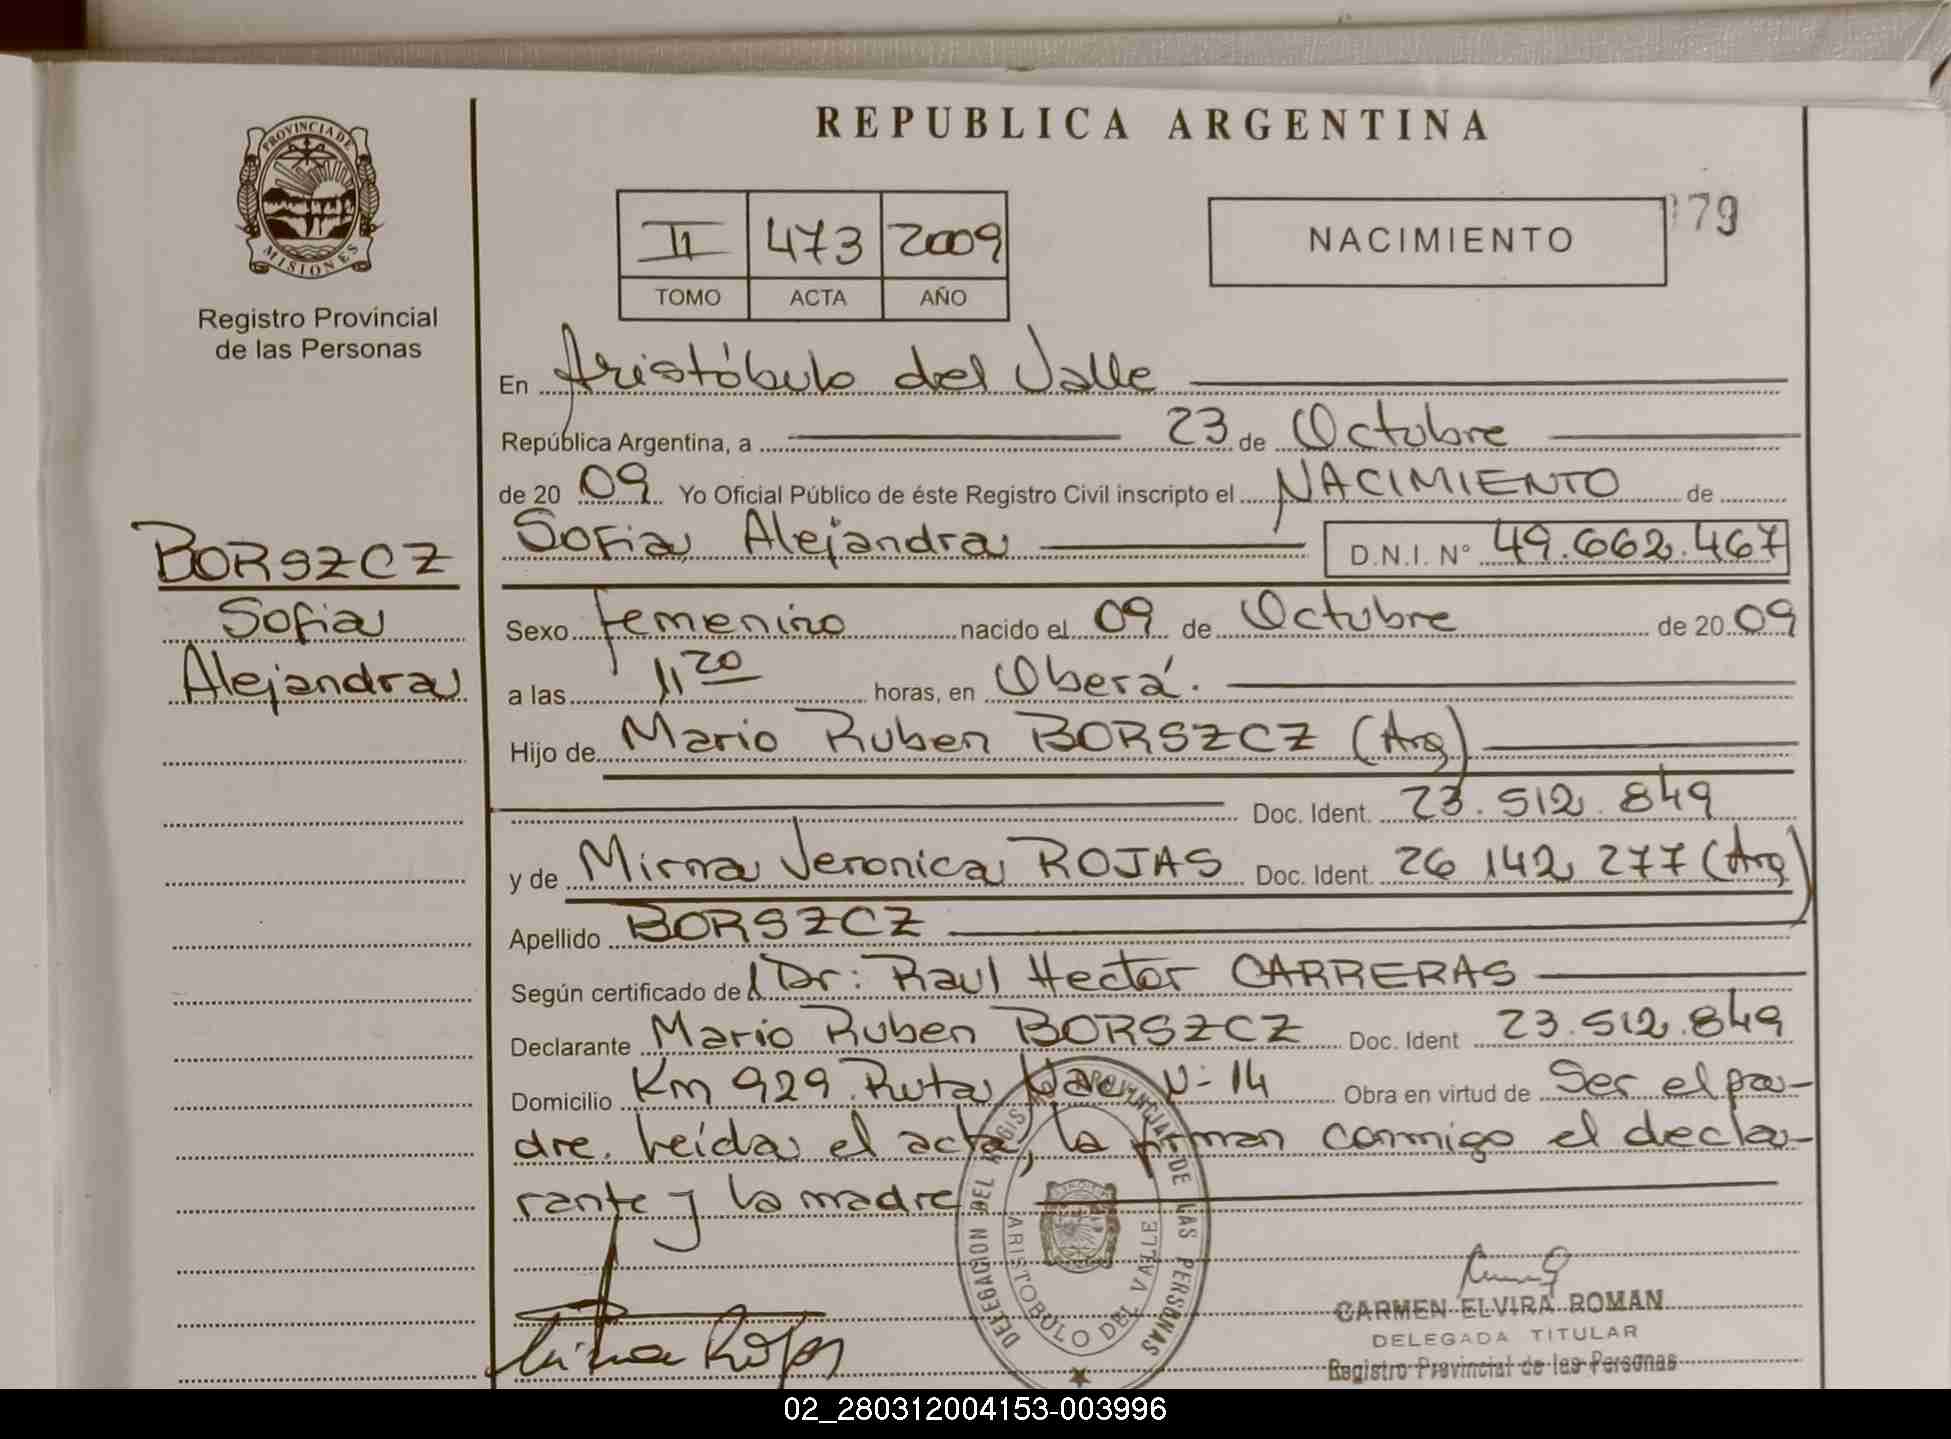 REPUBLICA ARGENTINA
PROVINCIA DE
MISIONES
Registro Provincial
de las Personas
II 473 2009
TOMO ACTA AÑO
NACIMIENTO
79
En Aristóbulo del Valle
República Argentina, a 23 de Octubre
de 20 09 Yo Oficial Público de éste Registro Civil inscripto el NACIMIENTO de
Sofia Alejandra D.N.I. N° 49.662.467
BORSZCZ
Sofia
Alejandra
Sexo femenino nacido el 09 de Octubre de 20 09
a las 11 20 horas, en Oberá.
Hijo de Mario Ruben BORSZCZ (Arg)
Doc. Ident. 23.512.849
y de Mirna Veronica ROJAS Doc. Ident. 26 142 277 (Arg)
Apellido BORSZCZ
Según certificado del Dr: Raul Hector CARRERAS
Declarante Mario Ruben BORSZCZ Doc. Ident 23.512.849
Domicilio Km 929 Ruta Nac N- 14 Obra en virtud de Ser el pa-
dre. Leída el acta, la firman conmigo el decla-
rante y la madre
DELEGACION DEL REGISTRO PROVINCIAL DE LAS PERSONAS
ARISTOBULO DEL VALLE
Rojas
CARMEN ELVIRA ROMAN
DELEGADA TITULAR
Registro Provincial de las Personas
02_280312004153-003996